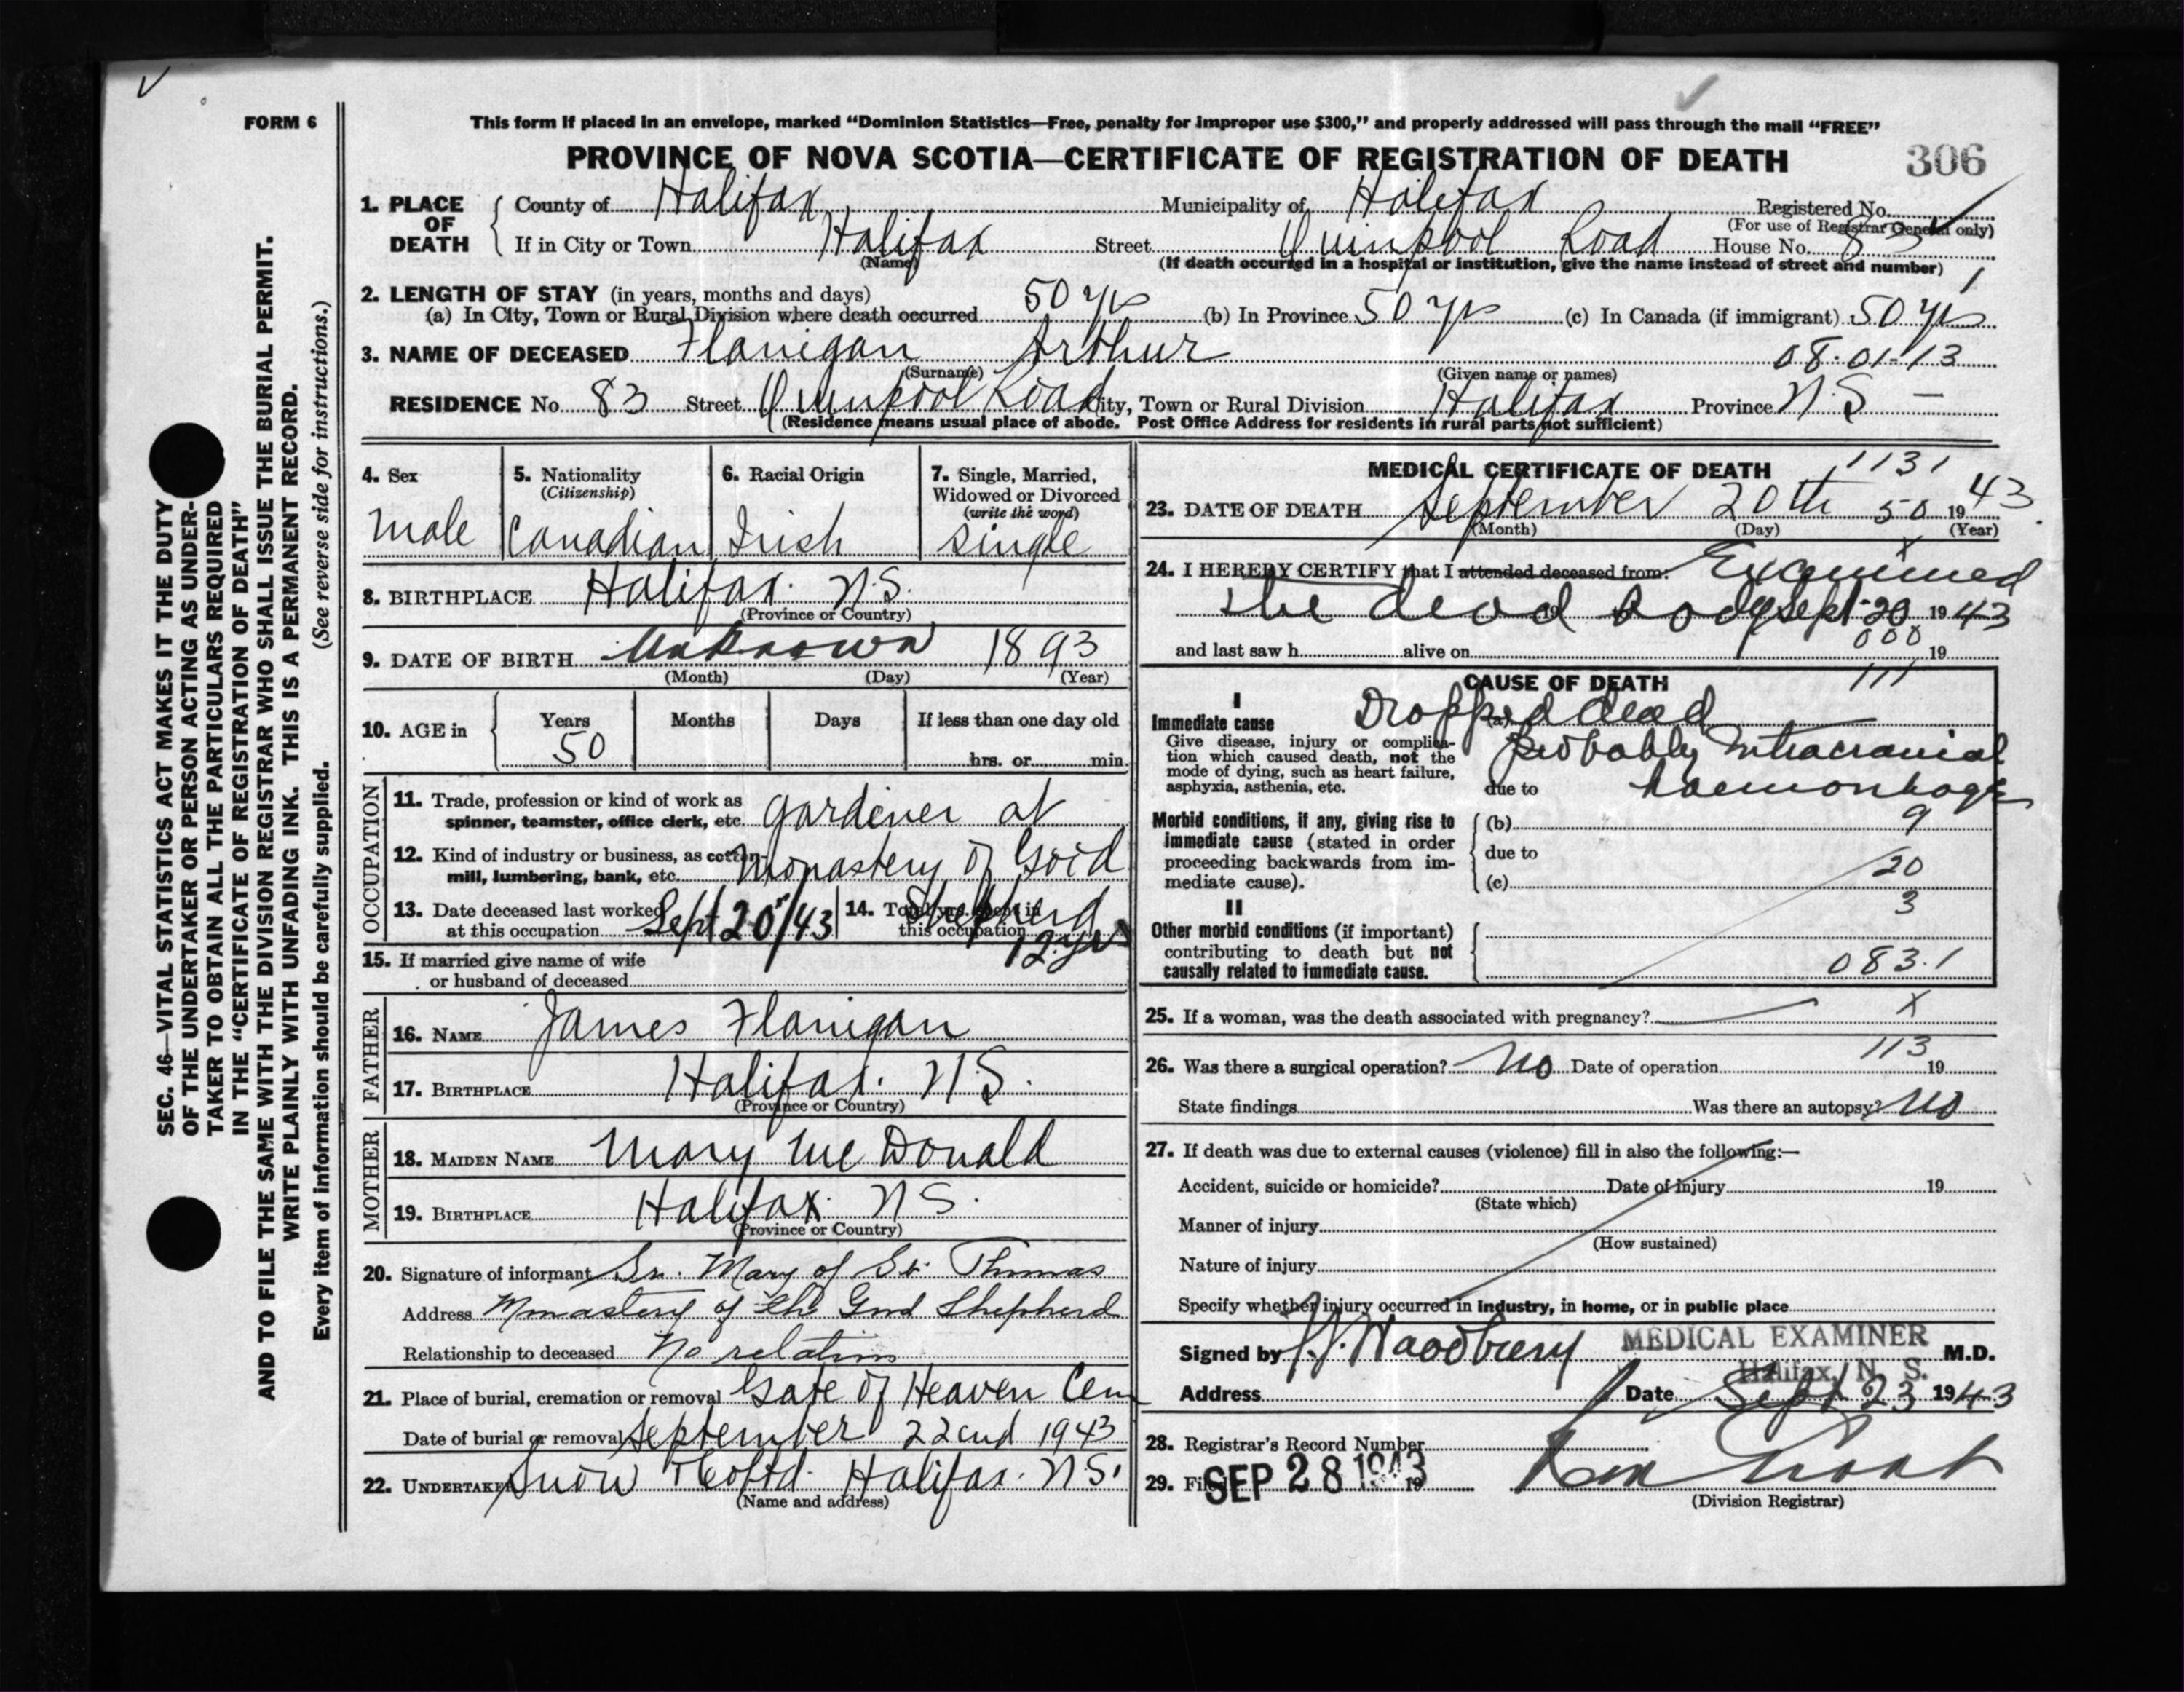 FORM 6
This form if placed in an envelope, marked "Dominion Statistics—Free, penalty for improper use $300," and properly addressed will pass through the mail "FREE"
PROVINCE OF NOVA SCOTIA—CERTIFICATE OF REGISTRATION OF DEATH 306
1. PLACE OF DEATH County of Halifax Municipality of Halifax Registered No.
(For use of Registrar General only)
If in City or Town Halifax Street Quinpool Road House No. 83
(Name) (If death occurred in a hospital or institution, give the name instead of street and number)
2. LENGTH OF STAY (in years, months and days)
(a) In City, Town or Rural Division where death occurred 50 yrs (b) In Province 50 yrs (c) In Canada (if immigrant) 50 yrs
3. NAME OF DECEASED Flanigan Arthur 08-01-13
(Surname) (Given name or names)
RESIDENCE No. 83 Street Quinpool Road City, Town or Rural Division Halifax Province N.S —
(Residence means usual place of abode. Post Office Address for residents in rural parts not sufficient)
4. Sex
Male
5. Nationality
(Citizenship)
Canadian
6. Racial Origin
Irish
7. Single, Married, Widowed or Divorced
(write the word)
Single
8. BIRTHPLACE Halifax. N.S.
(Province or Country)
9. DATE OF BIRTH Unknown 1893
(Month) (Day) (Year)
10. AGE in Years Months Days If less than one day old
50 hrs. or min.
OCCUPATION
11. Trade, profession or kind of work as spinner, teamster, office clerk, etc. gardener at
12. Kind of industry or business, as cotton-mill, lumbering, bank, etc. Monastery of Good Shepherd
13. Date deceased last worked at this occupation Sept 20/43
14. Total yrs. spent in this occupation 12 yrs
15. If married give name of wife
or husband of deceased
FATHER
16. NAME James Flanigan
17. BIRTHPLACE Halifax. N.S.
(Province or Country)
MOTHER
18. MAIDEN NAME Mary McDonald
19. BIRTHPLACE Halifax. N S.
(Province or Country)
20. Signature of informant Sr. Mary of St. Thomas
Address Monastery of the Good Shepherd
Relationship to deceased No relation
21. Place of burial, cremation or removal Gate of Heaven Cem
Date of burial or removal September 22nd 1943
22. UNDERTAKER Snow & Co Ltd. Halifax. N S.
(Name and address)
MEDICAL CERTIFICATE OF DEATH 1131
23. DATE OF DEATH September 20th 50 1943
(Month) (Day) (Year)
x
24. I HEREBY CERTIFY that I attended deceased from: Examined
the dead body Sept 20 1943
000
and last saw h alive on 19
CAUSE OF DEATH 111
I
Immediate cause Dropped dead (a)
Give disease, injury or complication which caused death, not the mode of dying, such as heart failure, asphyxia, asthenia, etc.
Probably Intracranial
due to haemorrhage
9
Morbid conditions, if any, giving rise to immediate cause (stated in order proceeding backwards from immediate cause).
(b)
due to
20
(c)
3
II
Other morbid conditions (if important) contributing to death but not causally related to immediate cause.
083.1
25. If a woman, was the death associated with pregnancy? x
113
26. Was there a surgical operation? No Date of operation 19
State findings Was there an autopsy? No
27. If death was due to external causes (violence) fill in also the following:—
Accident, suicide or homicide? Date of injury 19
(State which)
Manner of injury
(How sustained)
Nature of injury
Specify whether injury occurred in industry, in home, or in public place
Signed by Woodbury MEDICAL EXAMINER M.D.
Halifax, N. S.
Address Date Sept 23 1943
28. Registrar's Record Number
29. Filed SEP 28 1943 19
(Division Registrar)
SEC. 46—VITAL STATISTICS ACT MAKES IT THE DUTY
OF THE UNDERTAKER OR PERSON ACTING AS UNDER-
TAKER TO OBTAIN ALL THE PARTICULARS REQUIRED
IN THE "CERTIFICATE OF REGISTRATION OF DEATH"
AND TO FILE THE SAME WITH THE DIVISION REGISTRAR WHO SHALL ISSUE THE BURIAL PERMIT.
WRITE PLAINLY WITH UNFADING INK. THIS IS A PERMANENT RECORD.
Every item of information should be carefully supplied. (See reverse side for instructions.)